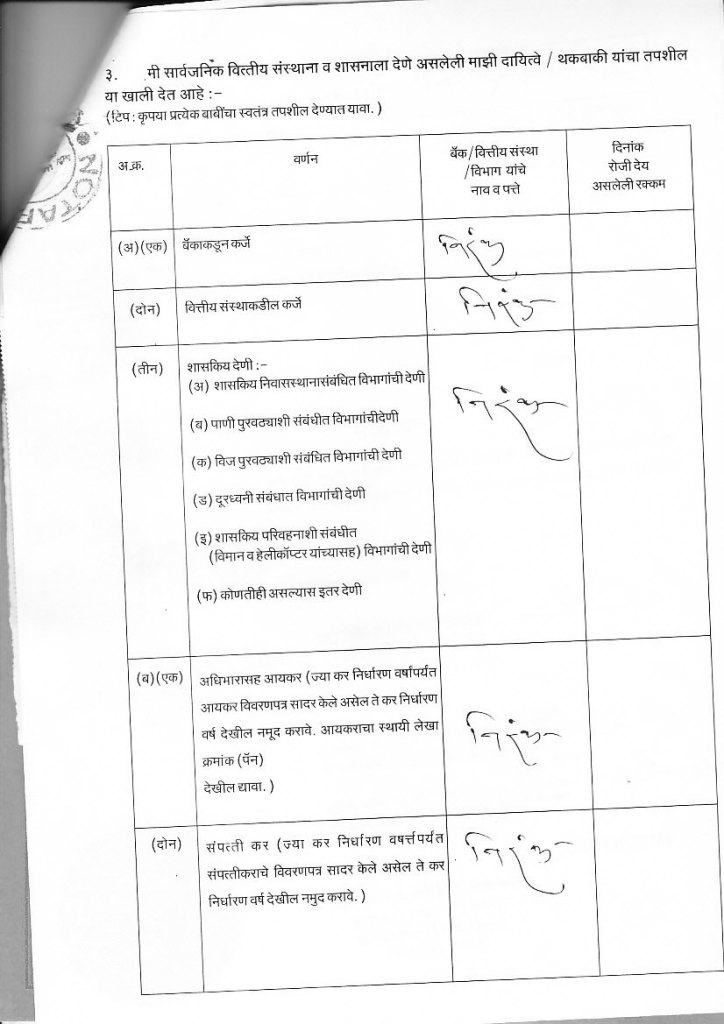 ३. मी सार्वजनिक वित्तीय संस्थाना व शासनाला देणे असलेली माझी दायित्वे / थकबाकी यांचा तपशील
या खाली देत आहे :–
(टिप : कृपया प्रत्येक बाबींचा स्वतंत्र तपशील देण्यात यावा. )
NOTAR
अ.क्र.
वर्णन
बॅक/वित्तीय संस्था
/विभाग यांचे
नाव व पत्ते
दिनांक
रोजी देय
असलेली रक्कम
(अ)(एक) बॅकाकडून कर्जे निरंक
(दोन) वित्तीय संस्थाकडील कर्जे निरंक
(तीन) शासकिय देणी :–
(अ) शासकिय निवासस्थानासंबंधित विभागांची देणी
निरंक
(ब) पाणी पुरवठ्याशी संबंधीत विभागांचीदेणी
(क) विज पुरवठ्याशी संबंधित विभागांची देणी
(ड) दूरध्वनी संबंधात विभागांची देणी
(इ) शासकिय परिवहनाशी संबंधीत
(विमान व हेलीकॉप्टर यांच्यासह) विभागांची देणी
(फ) कोणतीही असल्यास इतर देणी
(ब)(एक) अधिभारासह आयकर (ज्या कर निर्धारण वर्षापर्यंत
आयकर विवरणपत्र सादर केले असेल ते कर निर्धारण
वर्ष देखील नमूद करावे. आयकराचा स्थायी लेखा
निरंक
क्रमांक (पॅन)
देखील द्यावा. )
(दोन) संपत्ती कर (ज्या कर निर्धारण वषर्त्तपर्यंत
निरंक
संपत्तीकराचे विवरणपत्र सादर केले असेल ते कर
निर्धारण वर्ष देखील नमुद करावे. )